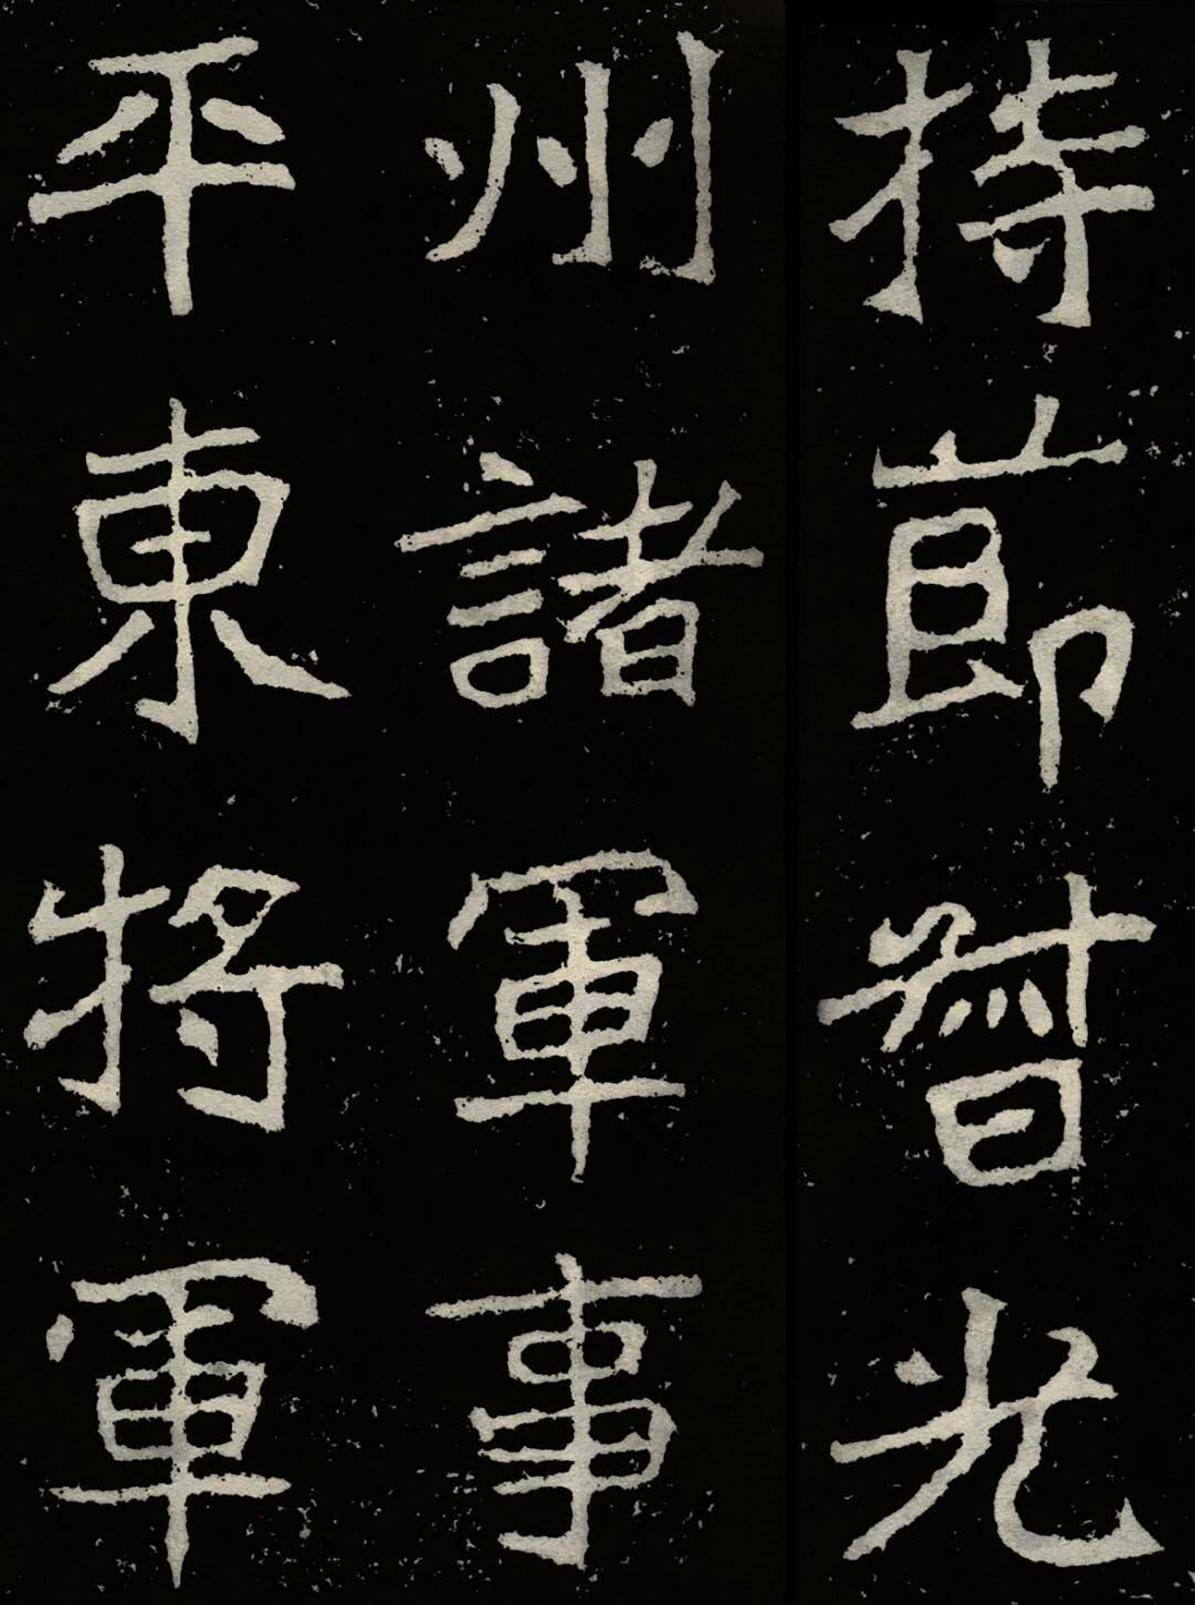 持節督光
州諸軍事
平東將軍